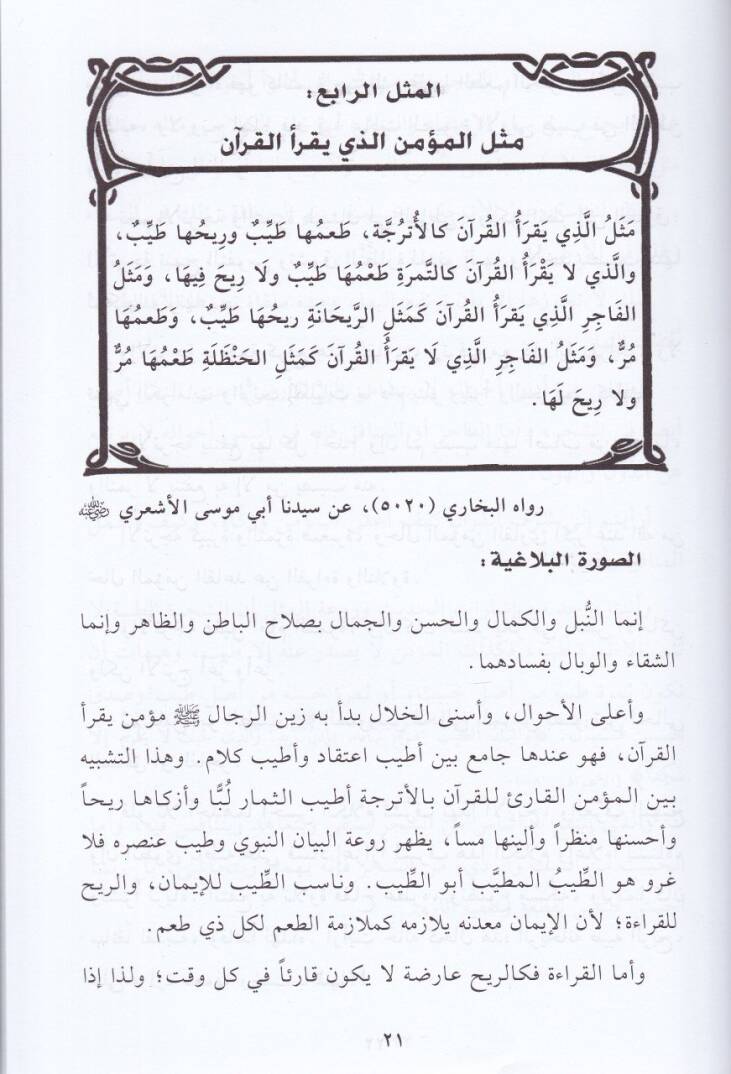 المثل الرابع:
مثل المؤمن الذي يقرأ القرآن
مَثَلُ الَّذِي يَقرَأُ القُرآنَ كالأُترُجَّة، طَعمُها طَيِّبٌ وريحُها طَيِّبٌ،
والَّذي لا يَقْرَأُ القُرآنَ كالتَّمرةِ طَعْمُهَا طَيِّبٌ ولَا رِيحَ فِيهَا، وَمَثَلُ
الفَاجِرِ الَّذِي يَقرَأُ القُرآنَ كَمَثَلِ الرَّيحَانَةِ رِيحُهَا طَيِّبٌ، وَطَعمُهَا
مُرٌّ، وَمَثَلُ الفَاجِرِ الَّذِي لَا يَقرَأُ القُرآنَ كَمَثَلِ الحَنْظَلَةِ طَعْمُهَا مُرٌّ
ولا رِيحَ لَهَا.
رواه البخاري (٥٠٢٠)، عن سيدنا أبي موسى الأشعري رضي الله عنه
الصورة البلاغية:
إنما النُّبل والكمال والحسن والجمال بصلاح الباطن والظاهر وإنما
الشقاء والوبال بفسادهما.
وأعلى الأحوال، وأسنى الخلال بدأ به زين الرجال ﷺ مؤمن يقرأ
القرآن، فهو عندها جامع بين أطيب اعتقاد وأطيب كلام. وهذا التشبيه
بين المؤمن القارئ للقرآن بالأترجة أطيب الثمار لُبًّا وأزكاها ريحاً
وأحسنها منظراً وألينها مساً، يظهر روعة البيان النبوي وطيب عنصره فلا
غرو هو الطِّيبُ المطيَّب أبو الطِّيب. وناسب الطِّيب للإيمان، والريح
للقراءة؛ لأن الإيمان معدنه يلازمه كملازمة الطعم لكل ذي طعم.
وأما القراءة فكالريح عارضة لا يكون قارئاً في كل وقت؛ ولذا إذا
٢١